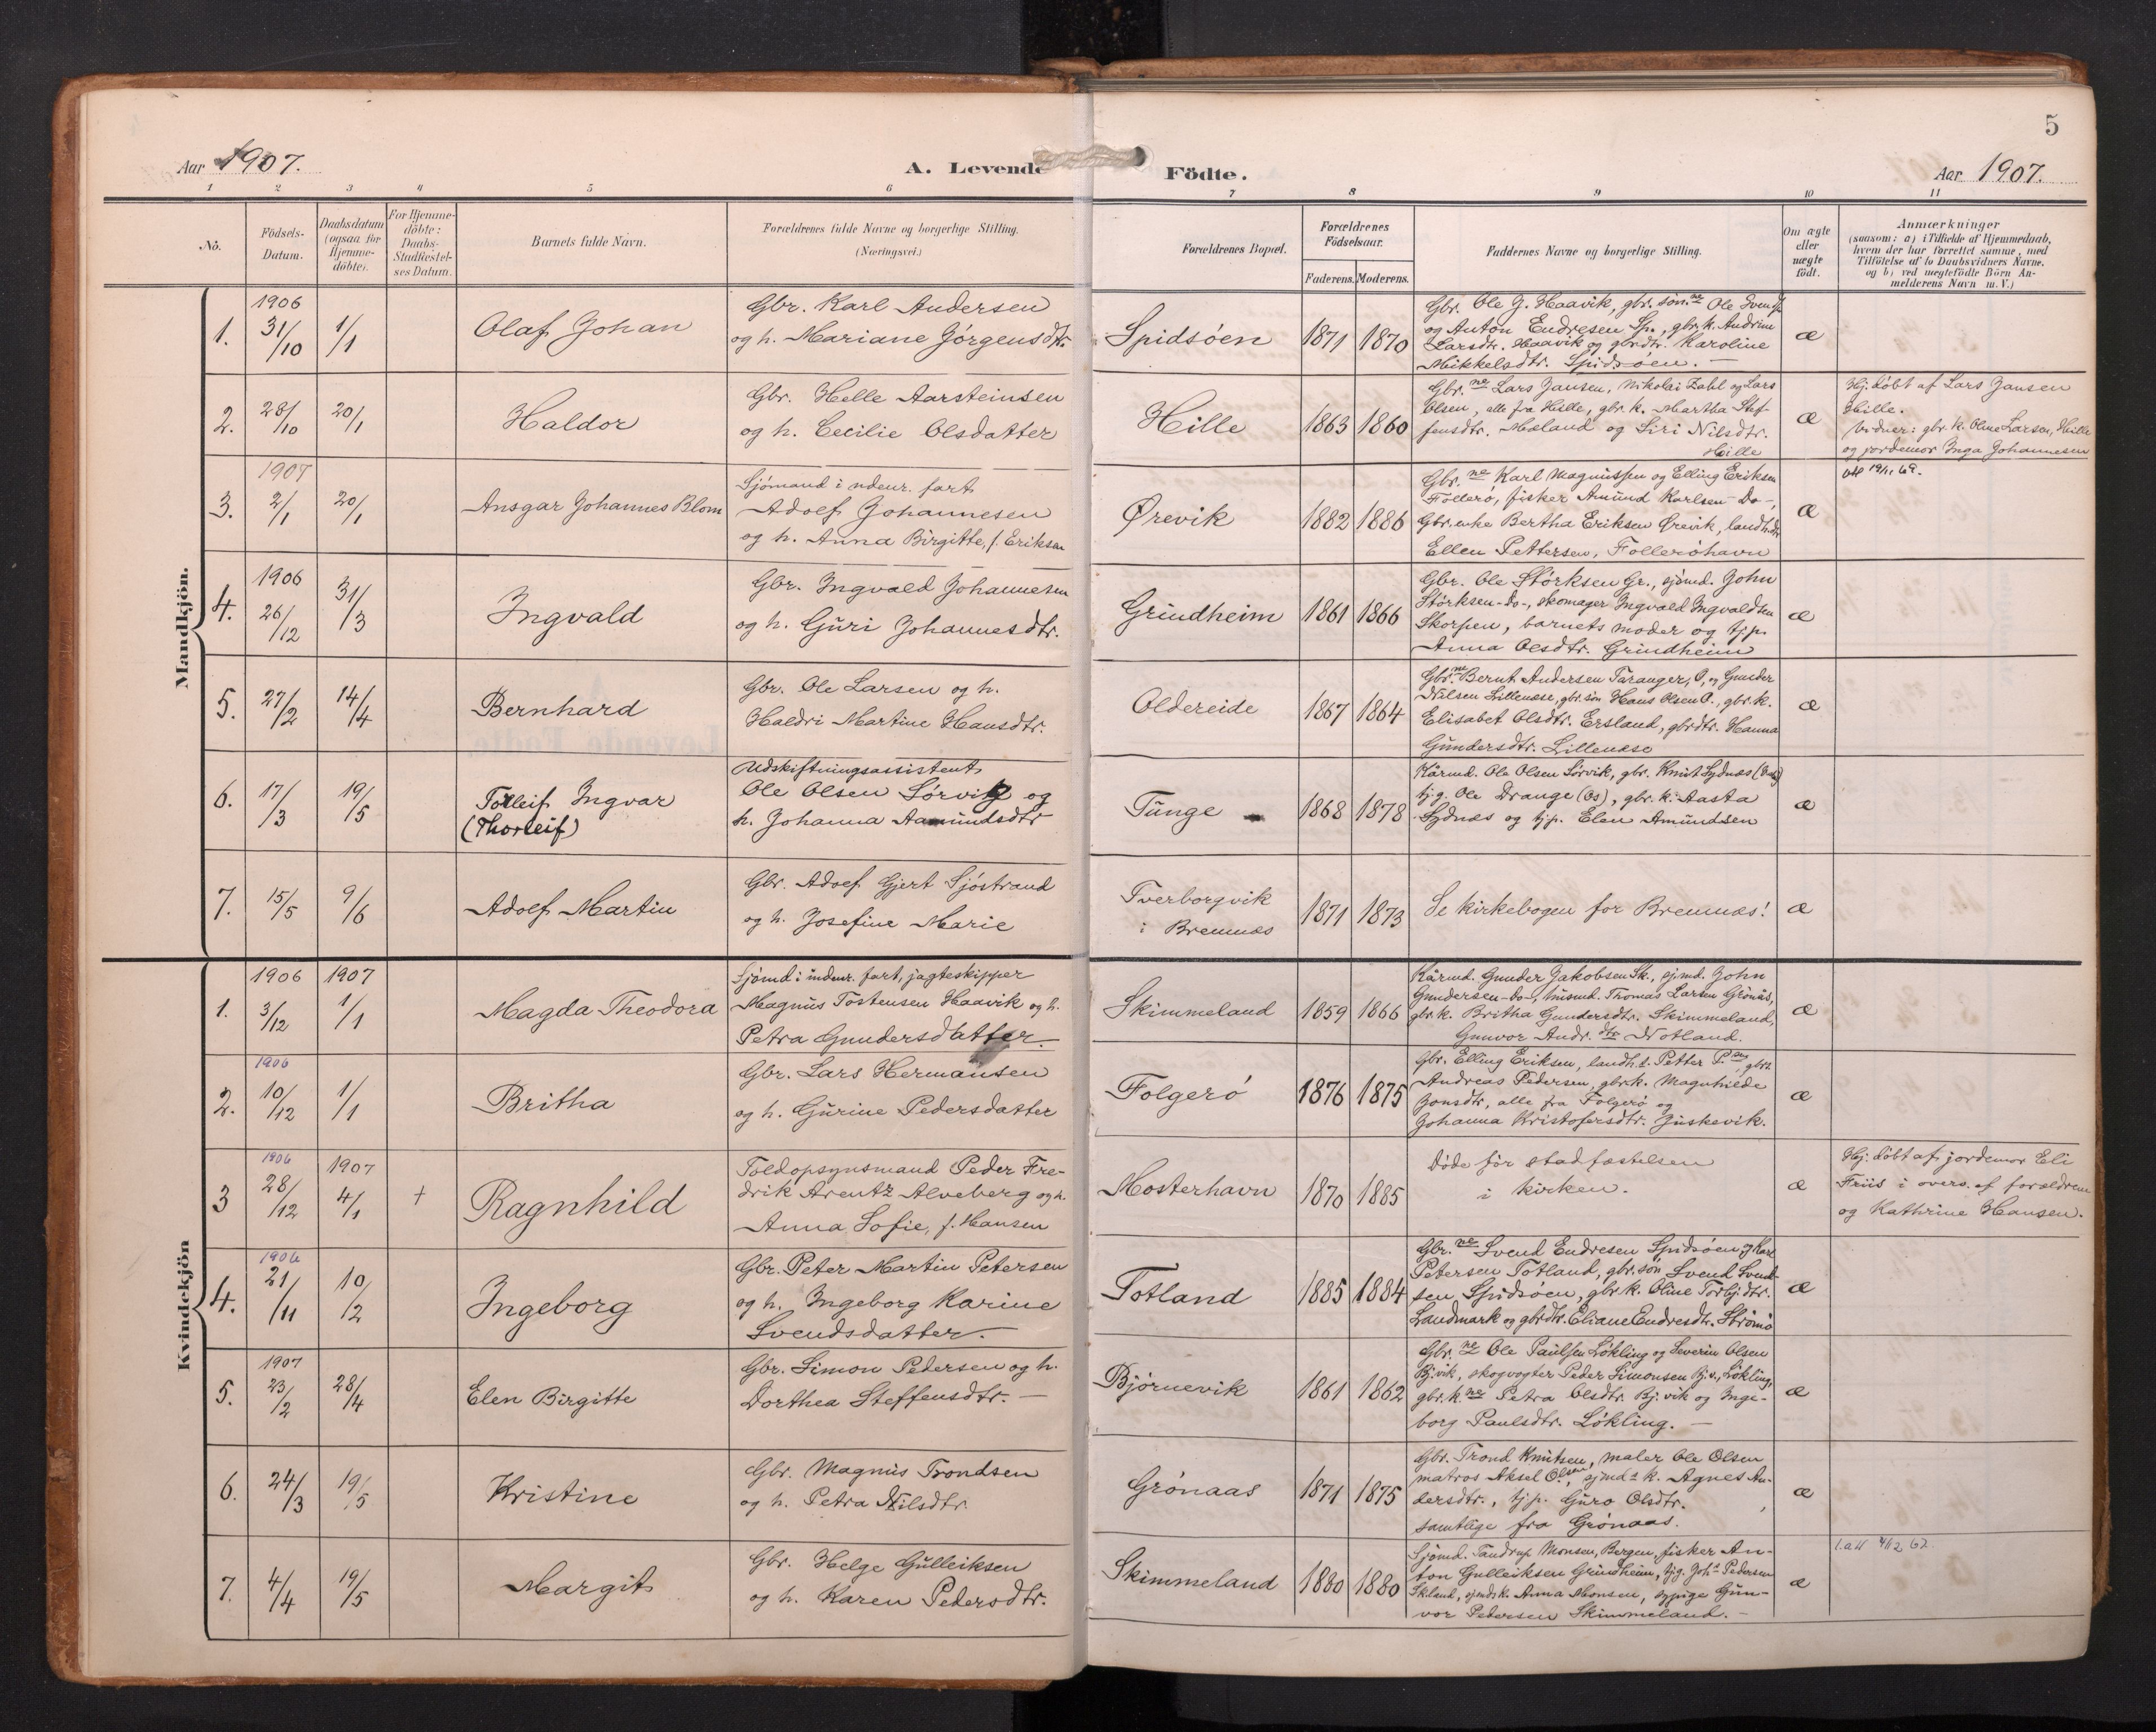 5
Aar 1907.
A. Levende Födte.
Aar 1907.
1 2 3 4 5 6 7 8 9 10 11
Nö.
Födsels-Datum.
Daabsdatum (ogsaa for Hjemme-döbte).
For Hjemme-döbte: Daabs-Stadfæstel-ses Datum.
Barnets fulde Navn.
Forældrenes fulde Navne og borgerlige Stilling. (Næringsvei.)
Forældrenes Bopæl.
Forældrenes Födselsaar.
Faderens. Moderens.
Faddernes Navne og borgerlige Stilling.
Om ægte eller uægte födt.
Anmærkninger
(saasom: a) i Tilfælde af Hjemmedaab,
hvem der har forrettet samme, med
Tilföielse af to Daabsvidners Navne.
og b) ved uægtefödte Börn An-
melderens Navn m. V.)
Mandkjön.
1. 1906 31/10 1/1 Olaf Johan
Gbr. Karl Andersen
og h. Mariane Jörgensdtr.
Spidsöen 1871 1870
Gbr. Ole J. Haavik, gbr. søn.ne Ole Svends.
og Anton Endresen Sp., gbr. k. Andrine
Larsdtr. Haavik og gbrdtr. Karoline
Mikkelsdtr. Spidsöen. —
æ
2. 28/10 20/1 Haldor
Gbr. Helle Aarsteinsen
og h. Cecilie Olsdatter
Hille 1863 1860
Gbr.ne Lars Jansen, Nikolai Zahl og Lars
Olsen, alle fra Hille, gbr. k. Martha Stef-
fensdtr. Mæland og Siri Nilsdtr.
Hille
æ
Hj. döbt af Lars Jansen
Hille.
Vidner: gbr. k. Oline Larsen, Hille
og jordemor Inga Johannesen
3. 1907 2/1 20/1 Ansgar Johannes Blom
Sjömand i udenr. fart
Adolf Johannesen
og h. Anna Birgitte, f. Eriksen
Ørevik 1882 1886
Gbr.ne Karl Magnussen og Elling Eriksen
Follerö, fisker Amund Karlsen -Do-,
Gbr. enke Bertha Eriksen Ørevik, landh.
Ellen Pettersen, Folleröhavn
æ
19/11 69.
4. 1906 26/12 31/3 Ingvald
Gbr. Ingvald Johannesen
og h. Guri Johannesdtr.
Grindheim 1861 1866
Gbr. Ole Störksen Gr., sjömd. John
Störksen -do-, skomager Ingvald Ingvaldsen
Skorpen, barnets moder og tj.p.
Anna Olsdtr. Grindheim
æ
5. 27/2 14/4 Bernhard
Gbr. Ole Larsen og h.
Haldri Martine Hansdtr.
Oldereide 1867 1864
Gbr.ne Bernt Andersen Taranger, O, og Gunder
Nilsen Lillenæse, gbr. søn Hans Olsen O., gbr. k.
Elisabet Olsdtr. Ersland, gbrdtr. Hanna
Gundersdtr. Lillenæse
æ
6. 17/3 19/5 Torleif Ingvar
(Thorleif)
Udskiftningsassistent
Ole Olsen Sörvig og
h. Johanna Aamundsdtr
Tunge 1868 1878
Kårmd. Ole Olsen Sörvik, gbr. Knut Sydnæs
tj.g. Ole Drange (Os), gbr. k. Aasta
Sydnæs og tj.p. Elen Amundsen
æ
7. 15/5 9/6 Adolf Martin
Gbr. Adolf Gjert Sjöstrand
og h. Josefine Marie
Tverborgvik
i Bremnæs
1871 1873
Se kirkebogen for Bremnæs!
æ
Kvindekjön
1. 1906 3/12 1907 1/1 Magda Theodora
Sjömd. i indenr. fart, jagteskipper
Magnus Tostensen Haavik og h.
Petra Gundersdatter.
Skimmeland 1859 1866
Kårmd. Gunder Jakobsen Sk., sjömd. John
Gundersen -do-, husmd. Thomas Larsen Grönås,
gbr. k. Britha Gundersdtr. Skimmeland,
Gunvor Andr.dtr Notland.
æ
2. 1906 10/12 1/1 Britha
Gbr. Lars Hermansen
og h. Gurine Pedersdatter
Folgerö 1876 1875
Gbr. Elling Eriksen, landh. Petter P.sen, gbr.
Andreas Pedersen, gbr. k. Magnhilde
Jonsdtr, alle fra Folgerö og
Johanna Kristofersdtr. Juskevik.
æ
3 1906 28/12 1907 4/1 + Ragnhild
Toldopsynsmand Peder Fre-
drik Arentz Alveberg og h.
Anna Sofie, f. Hansen
Mosterhavn 1870 1885
Döde för stadfæstelsen
i kirken.
æ
Hj. döbt af jordemor Eli
Friis i overv. af forældrene
og Kathrine Hansen.
4. 1906 21/11 10/2 Ingeborg
Gbr. Peter Martin Petersen
og h. Ingeborg Karine
Svendsdatter.
Totland 1885 1884
Gbr.ne Svend Endresen Spidsöen og Karl
Petersen Totland, gbr. søn Svend Svend-
sen Spidsöen, gbr. k. Oline Torbj.dtr.
Landmark og gbrdtr. Eliane Endresdtr. Strömö
æ
5. 1907 23/2 28/4 Elen Birgitte
Gbr. Simon Pedersen og h.
Dorthea Steffensdtr. —
Björnevik 1861 1862
Gbr.ne Ole Paulsen Lökling og Severin Olsen
Bj.vik, skogvogter Peder Simonsen Bj.v., Lökling,
gbr. k.ne Petra Olsdtr. Bj.vik og Inge-
borg Paulsdtr. Lökling. —
æ
6. 24/3 19/5 Kristine
Gbr. Magnus Trondsen
og h. Petra Nilsdtr.
Grönaas 1871 1875
Gbr. Trond Knutsen, maler Ole Olsen
matros Aksel Olsen, sjmds k. Agnes An-
dersdtr., tj.p. Guro Olsdtr.
samtlige fra Grönaas.
æ
7. 4/4 19/5 Margit
Gbr. Helge Gulleiksen
og h. Karen Pedersdtr.
Skimmeland 1880 1880
Sjömd. Tandrup Monsen, Bergen, fisker An-
ton Gulleiksen Grindheim, tj.g. Johs Pedersen
Sk.land, sjmds k. Anna Monsen, sypige Gun-
vor Pedersen Skimmeland. —
æ
4/12 62.